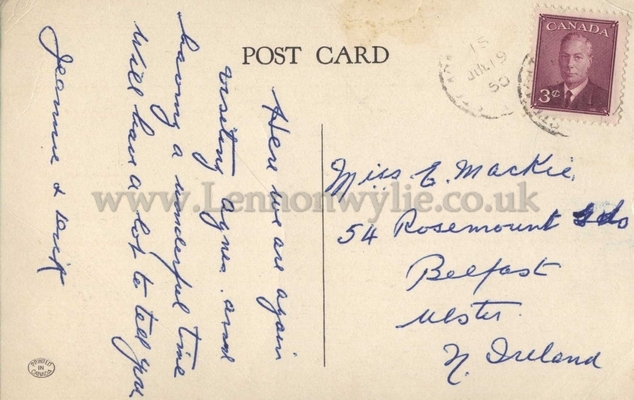 POST CARD
CANADA
3¢
15
JUL 19
50
Here we are again
visiting Agnes. and
having a wonderful time
Will have a lot to tell you
Jeannie &
Miss E. Mackie,
54 Rosemount Gds
Belfast
Ulster
N. Ireland
www.Lennonwylie.co.uk
PRINTED
IN
CANADA